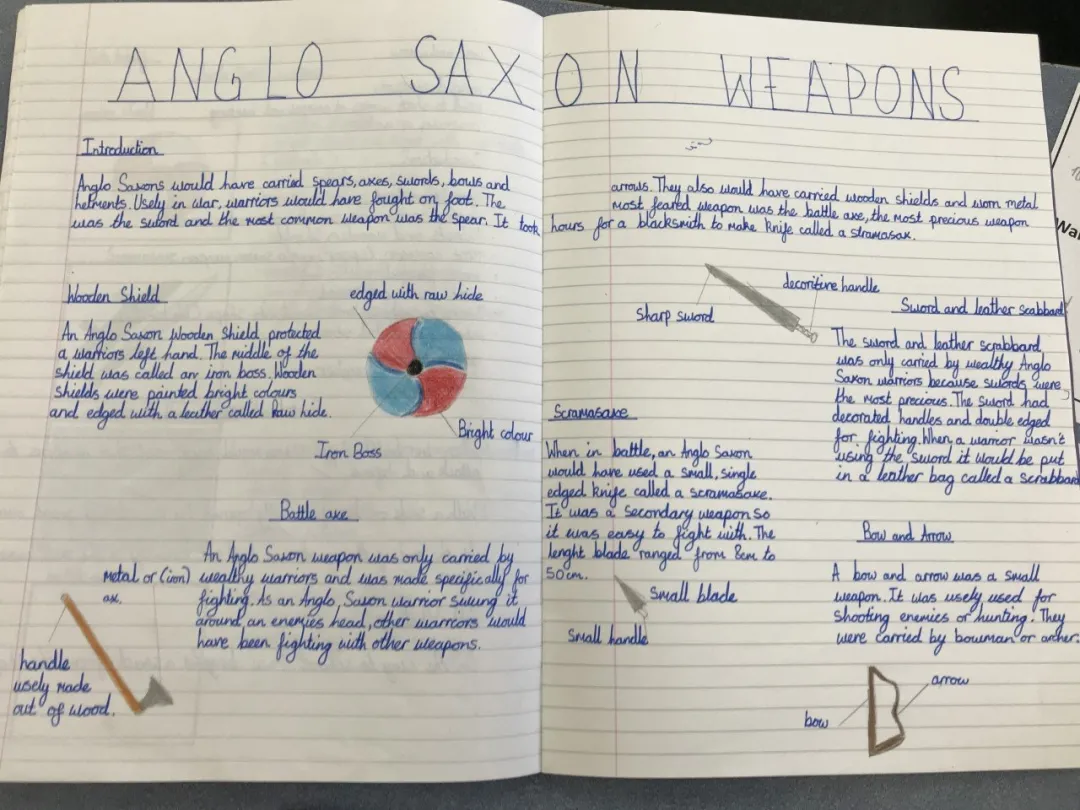 ANGLO SAXON WEAPONS
Introduction
Anglo Saxons would have carried spears, axes, swords, bows and arrows. They also would have carried wooden shields and worn metal
helments. Usely in war, warriors would have fought on foot. The most feared weapon was the battle axe, the most precious weapon
was the sword and the most common weapon was the spear. It took hours for a blacksmith to make knife called a stramasax.
Wooden Shield
edged with raw hide
An Anglo Saxon Wooden Shield, protected
a warriors left hand. The middle of the
shield was called an iron boss. Wooden
shields were painted bright colours
and edged with a leather called Raw hide.
Iron Boss
Bright colour
Battle axe
An Anglo Saxon weapon was only carried by
wealthy warriors and was made specifically for
fighting. As an Anglo, Saxon warrior swung it
around an enemies head, other warriors would
have been fighting with other weapons.
Metal or (ion)
ax.
handle
usely made
out of wood.
Sharp sword
decoritive handle
Sword and leather scabbard
The sword and leather scrabbard
was only carried by wealthy Anglo
Saxon warriors because swords were
the most precious. The sword had
decorated handles and double edged
for fighting. When a warrior wasn't
using the sword it would be put
in a leather bag called a scrabbard
Scramasaxe
When in battle, an Anglo Saxon
would have used a small, single
edged knife called a scramasaxe.
It was a secondary weapon so
it was easy to fight with. The
lenght blade ranged from 8cm to
50cm.
Small blade
Small handle
Bow and Arrow
A bow and arrow was a small
weapon. It was usely used for
shooting enemies or hunting. They
were carried by bowman or archer.
arrow
bow